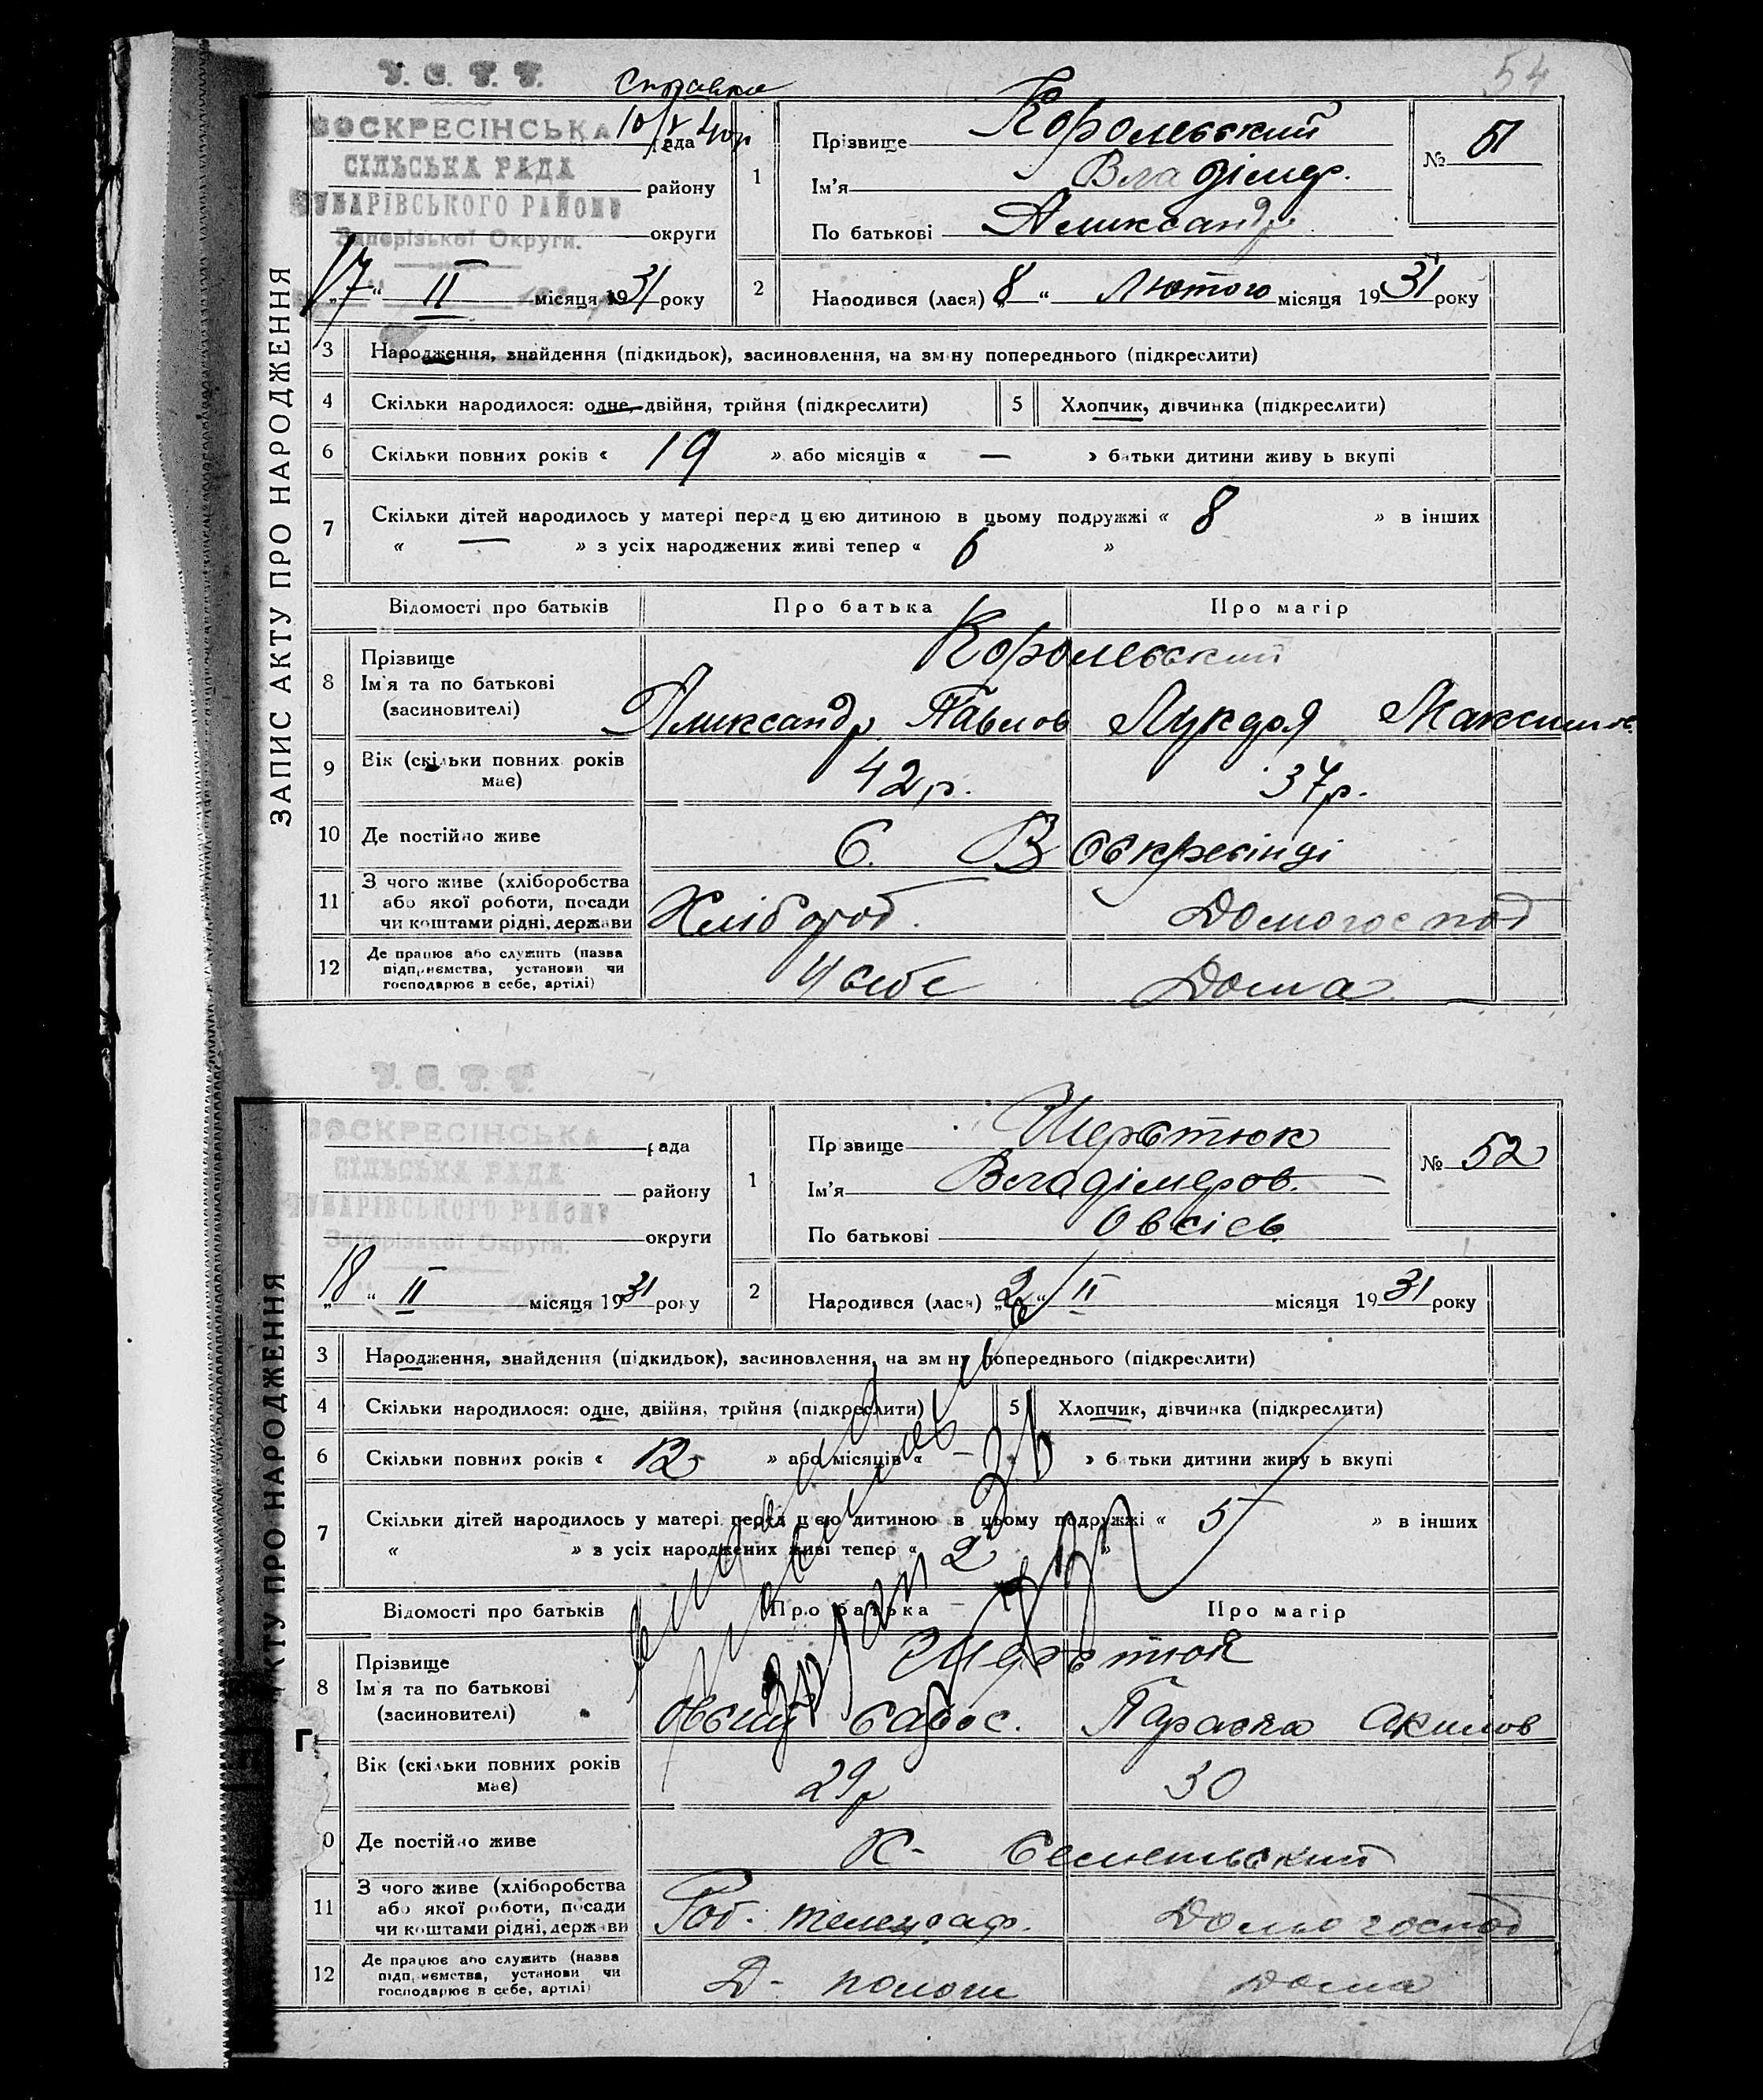 54
У. С. Р. Р.
Справка
10/X 40р
ВОСКРЕСІНСЬКА рада
СІЛЬСЬКА РАДА
району
ЧУБАРІВСЬКОГО РАЙОНУ
Запорізької Округи.
округи
„17“ II місяця 1931 року
1
Прізвище Королевский
Ім'я Владімер.
По батькові Аликсандр
№ 51
2
Народився (лася) „8“ Лютого місяця 1931 року
ЗАПИС АКТУ ПРО НАРОДЖЕННЯ
3 Народження, знайдення (підкидьок), засиновлення, на зміну попереднього (підкреслити)
4 Скільки народилося: одне, двійня, трійня (підкреслити) 5 Хлопчик, дівчинка (підкреслити)
6 Скільки повних років « 19 » або місяців « — » батьки дитини живуть вкупі
7 Скільки дітей народилось у матері перед цією дитиною в цьому подружжі « 8 » в інших
« — » з усіх народжених живі тепер « 6 »
Відомості про батьків Про батька Про матір
8 Прізвище Королевский
Ім'я та по батькові
(засиновителі) Аликсандр Павлов Лукдря Максимов
9 Вік (скільки повних років має) 42р. 37р.
10 Де постійно живе с. Воскресінці
11 З чого живе (хліборобства
або якої роботи, посади
чи коштами рідні, держави Хлібороб. Домогоспод
12 Де працює або служить (назва
підприємства, установи чи
господарює в себе, артілі) У себе Дома
У. С. Р. Р.
ВОСКРЕСІНСЬКА рада
СІЛЬСЬКА РАДА
району
ЧУБАРІВСЬКОГО РАЙОНУ
Запорізької Округи.
округи
„18“ II місяця 1931 року
1
Прізвище Шерстюк
Ім'я Владімеров.
По батькові Овсієв
№ 52
2
Народився (лася) II місяця 1931 року
КТУ ПРО НАРОДЖЕННЯ
3 Народження, знайдення (підкидьок), засиновлення, на зміну попереднього (підкреслити)
4 Скільки народилося: одне, двійня, трійня (підкреслити) 5 Хлопчик, дівчинка (підкреслити)
6 Скільки повних років « 12 » або місяців « — » батьки дитини живуть вкупі
7 Скільки дітей народилось у матері перед цією дитиною в цьому подружжі « 5 » в інших
« » з усіх народжених живі тепер « 2 »
Відомості про батьків Про батька Про матір
8 Прізвище Шерстюк
Ім'я та по батькові
(засиновителі) Овсий Параска Акимов
Вік (скільки повних років має) 29р 30
0 Де постійно живе
11 З чого живе (хліборобства
або якої роботи, посади
чи коштами рідні, держави Роб. телеграф. Домогоспод
12 Де працює або служить (назва
підприємства, установи чи
господарює в себе, артілі) Дома